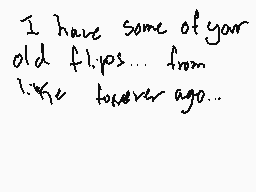 I have some of your
old flips... from
like forever ago...